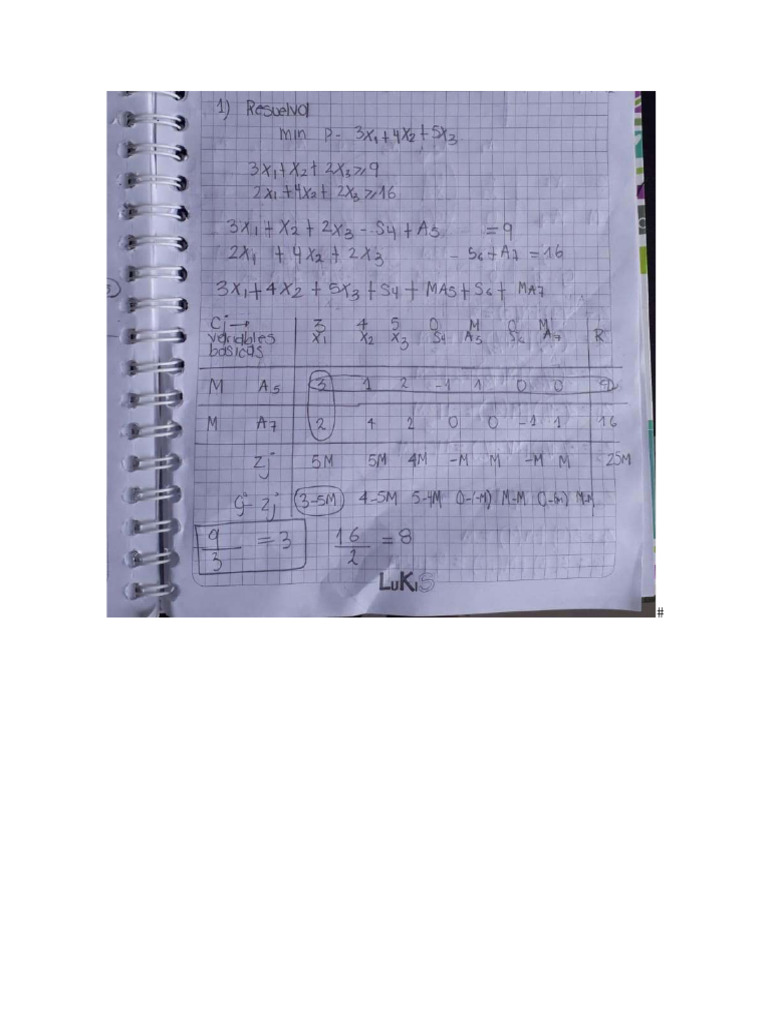 1) Resuelva
min P = 3x₁ + 4x₂ + 5x₃
3x₁ + x₂ + 2x₃ ≥ 9
2x₁ + 4x₂ + 2x₃ ≥ 16
3x₁ + x₂ + 2x₃ - S₄ + A₅ = 9
2x₁ + 4x₂ + 2x₃ - S₆ + A₇ = 16
3x₁ + 4x₂ + 5x₃ + S₄ + MA₅ + S₆ + MA₇
Cj → 3 4 5 0 M 0 M
variables x₁ x₂ x₃ S₄ A₅ S₆ A₇ R
basicas
M A₅ 3 1 2 -1 1 0 0 9
M A₇ 2 4 2 0 0 -1 1 16
Zj 5M 5M 4M -M M -M M 25M
Cj - Zj 3-5M 4-5M 5-4M 0-(-M) M-M 0-(-M) M-M
9/3 = 3 16/2 = 8
LuKiS
#